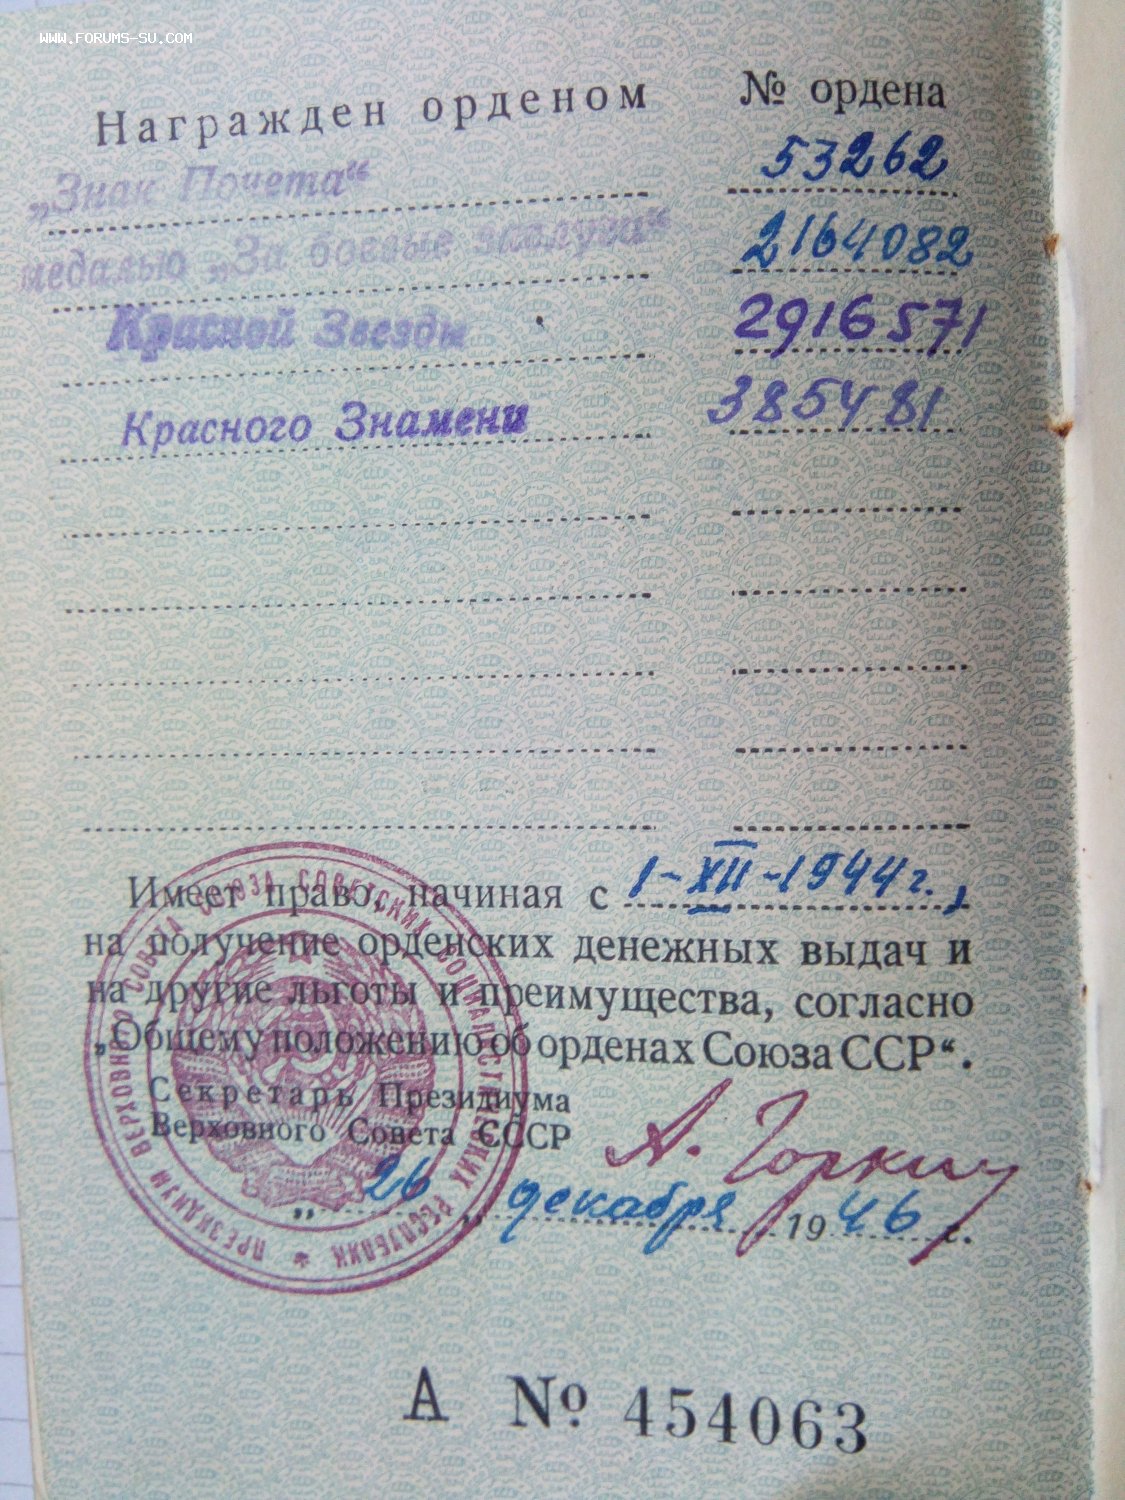 WWW.FORUMS-SU.COM
Награжден орденом № ордена
„Знак Почета“ 53262
медалью „За боевые заслуги“ 2164082
Красной Звезды 2916571
Красного Знамени 385481
Имеет право, начиная с 1-XII-1944г.,
на получение орденских денежных выдач и
на другие льготы и преимущества, согласно
„Общему положению об орденах Союза ССР“.
Секретарь Президиума
Верховного Совета СССР
А. Горкин
„26„ декабря 1946 г.
ПРЕЗИДИУМ ВЕРХОВНОГО СОВЕТА СОЮЗА СОВЕТСКИХ СОЦИАЛИСТИЧЕСКИХ РЕСПУБЛИК *
А № 454063